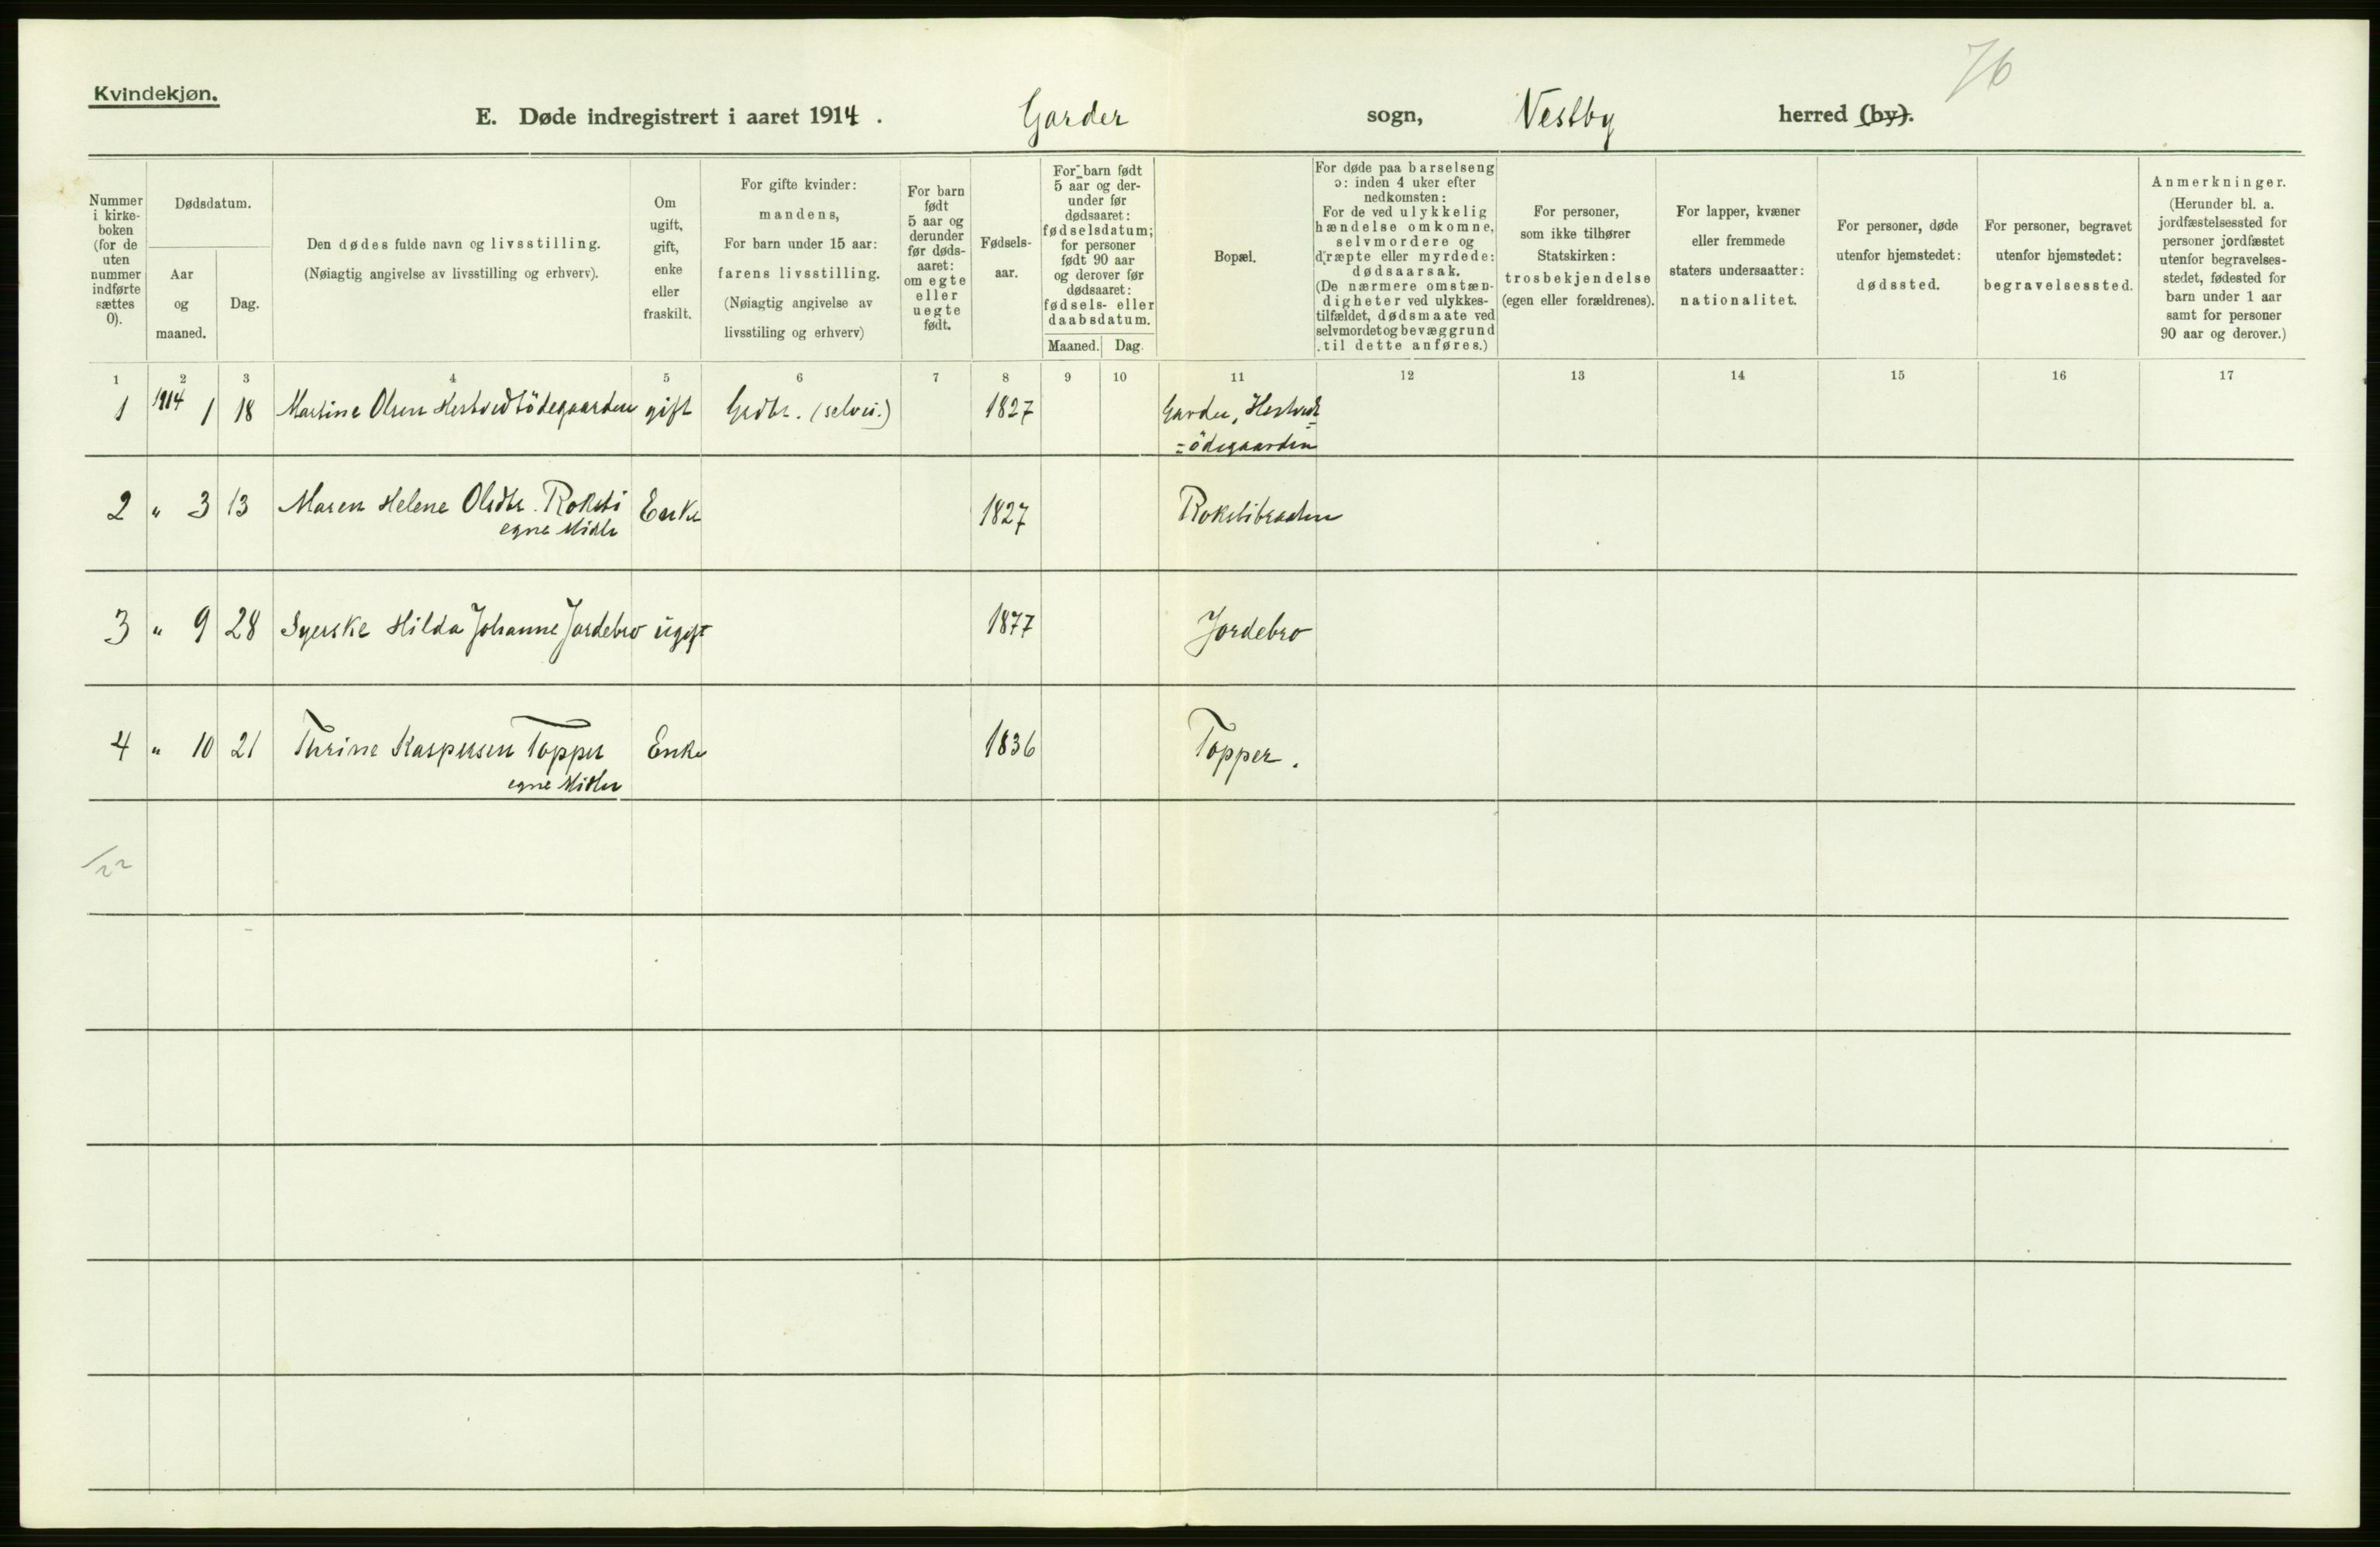 76
Kvindekjøn.
E. Døde indregistrert i aaret 1914. Garder sogn, Vestby herred (by).
Nummer i kirke-boken (for de uten nummer indførte sættes 0).
Dødsdatum.
Aar og maaned.
Dag.
Den dødes fulde navn og livsstilling.
(Nøiagtig angivelse av livsstilling og erhverv).
Om ugift, gift, enke eller fraskilt.
For gifte kvinder:
mandens,
For barn under 15 aar:
farens livsstilling.
(Nøiagtig angivelse av
livsstiling og erhverv)
For barn født 5 aar og derunder før døds-aaret: om egte eller uegte født.
Fødsels-aar.
For barn født 5 aar og der-under før dødsaaret: fødselsdatum; for personer født 90 aar og derover før dødsaaret: fødsels- eller daabsdatum.
Maaned. Dag.
Bopæl.
For døde paa barselseng
ɔ: inden 4 uker efter
nedkomsten:
For de ved ulykkelig
hændelse omkomne,
selvmordere og
dræpte eller myrdede:
dødsaarsak.
(De nærmere omstæn-
digheter ved ulykkes-
tilfældet, dødsmaate ved
selvmordet og bevæggrund
til dette anføres.)
For personer,
som ikke tilhører
Statskirken:
trosbekjendelse
(egen eller forældrenes).
For lapper, kvæner
eller fremmede
staters undersaatter:
nationalitet.
For personer, døde
utenfor hjemstedet:
dødssted.
For personer, begravet
utenfor hjemstedet:
begravelsessted.
Anmerkninger.
(Herunder bl. a.
jordfæstelsessted for
personer jordfæstet
utenfor begravelses-
stedet, fødested for
barn under 1 aar
samt for personer
90 aar og derover.)
1 2 3 4 5 6 7 8 9 10 11 12 13 14 15 16 17
1 1914 1 18 Martine Olsen Hestvedtödegaarden gift Grdbr. (selvei.) 1827 Garder, Hestvedt=
=ödegaarden
2 " 3 13 Maren Helene Olsdtr. Roksti Enke 1827 Rokstibraaten
egne Midler
3 " 9 28 Syerske Hilda Johanne Jordebro ugift 1877 Jordebro
4 " 10 21 Thrine Kaspersen Topper Enke 1836 Topper.
egne Midler